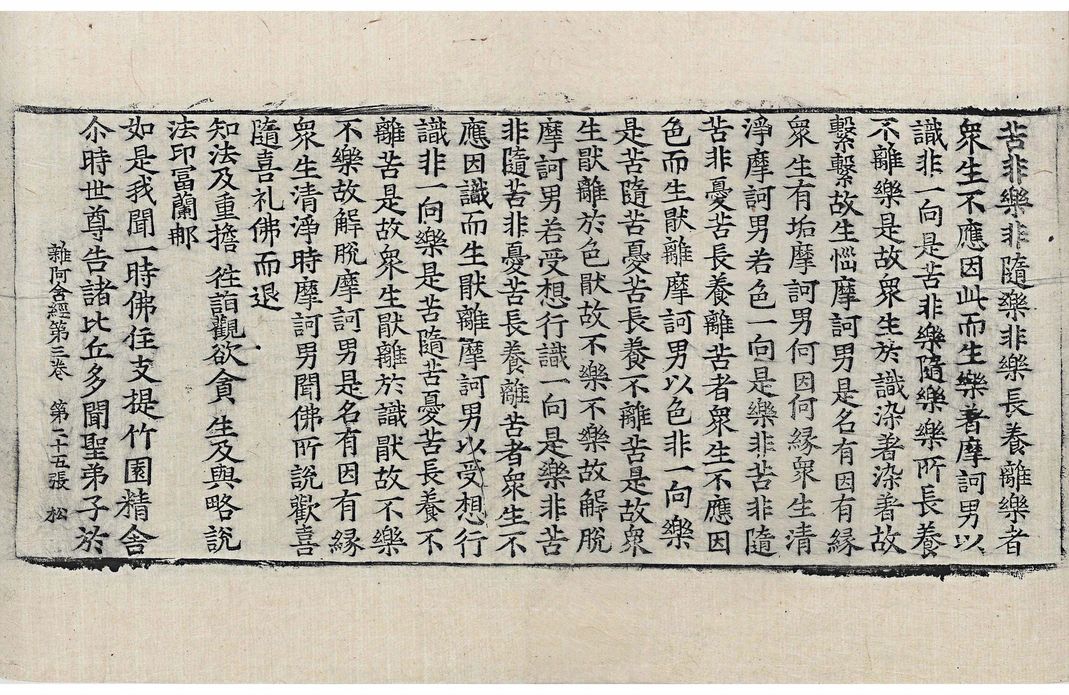 苦非樂非隨樂非樂長養離樂者
衆生不應因此而生樂著摩訶男以
識非一向是苦非樂隨樂樂所長養
不離樂是故衆生於識染著染著故
繫繫故生惱摩訶男是名有因有緣
衆生有垢摩訶男何因何緣衆生清
淨摩訶男若色一向是樂非苦非隨
苦非憂苦長養離苦者衆生不應因
色而生猒離摩訶男以色非一向樂
是苦隨苦憂苦長養不離苦是故衆
生猒離於色猒故不樂不樂故解脫
摩訶男若受想行識一向是樂非苦
非隨苦非憂苦長養離苦者衆生不
應因識而生猒離摩訶男以受想行
識非一向樂是苦隨苦憂苦長養不
離苦是故衆生猒離於識猒故不樂
不樂故解脫摩訶男是名有因有緣
衆生清淨時摩訶男聞佛所說歡喜
隨喜礼佛而退
知法及重擔 徃詣觀欲貪 生及與略說
法印富蘭䣯
如是我聞一時佛住支提竹園精舍
尒時世尊告諸比丘多聞聖弟子於
雜阿含經第三卷 第二十五張 松